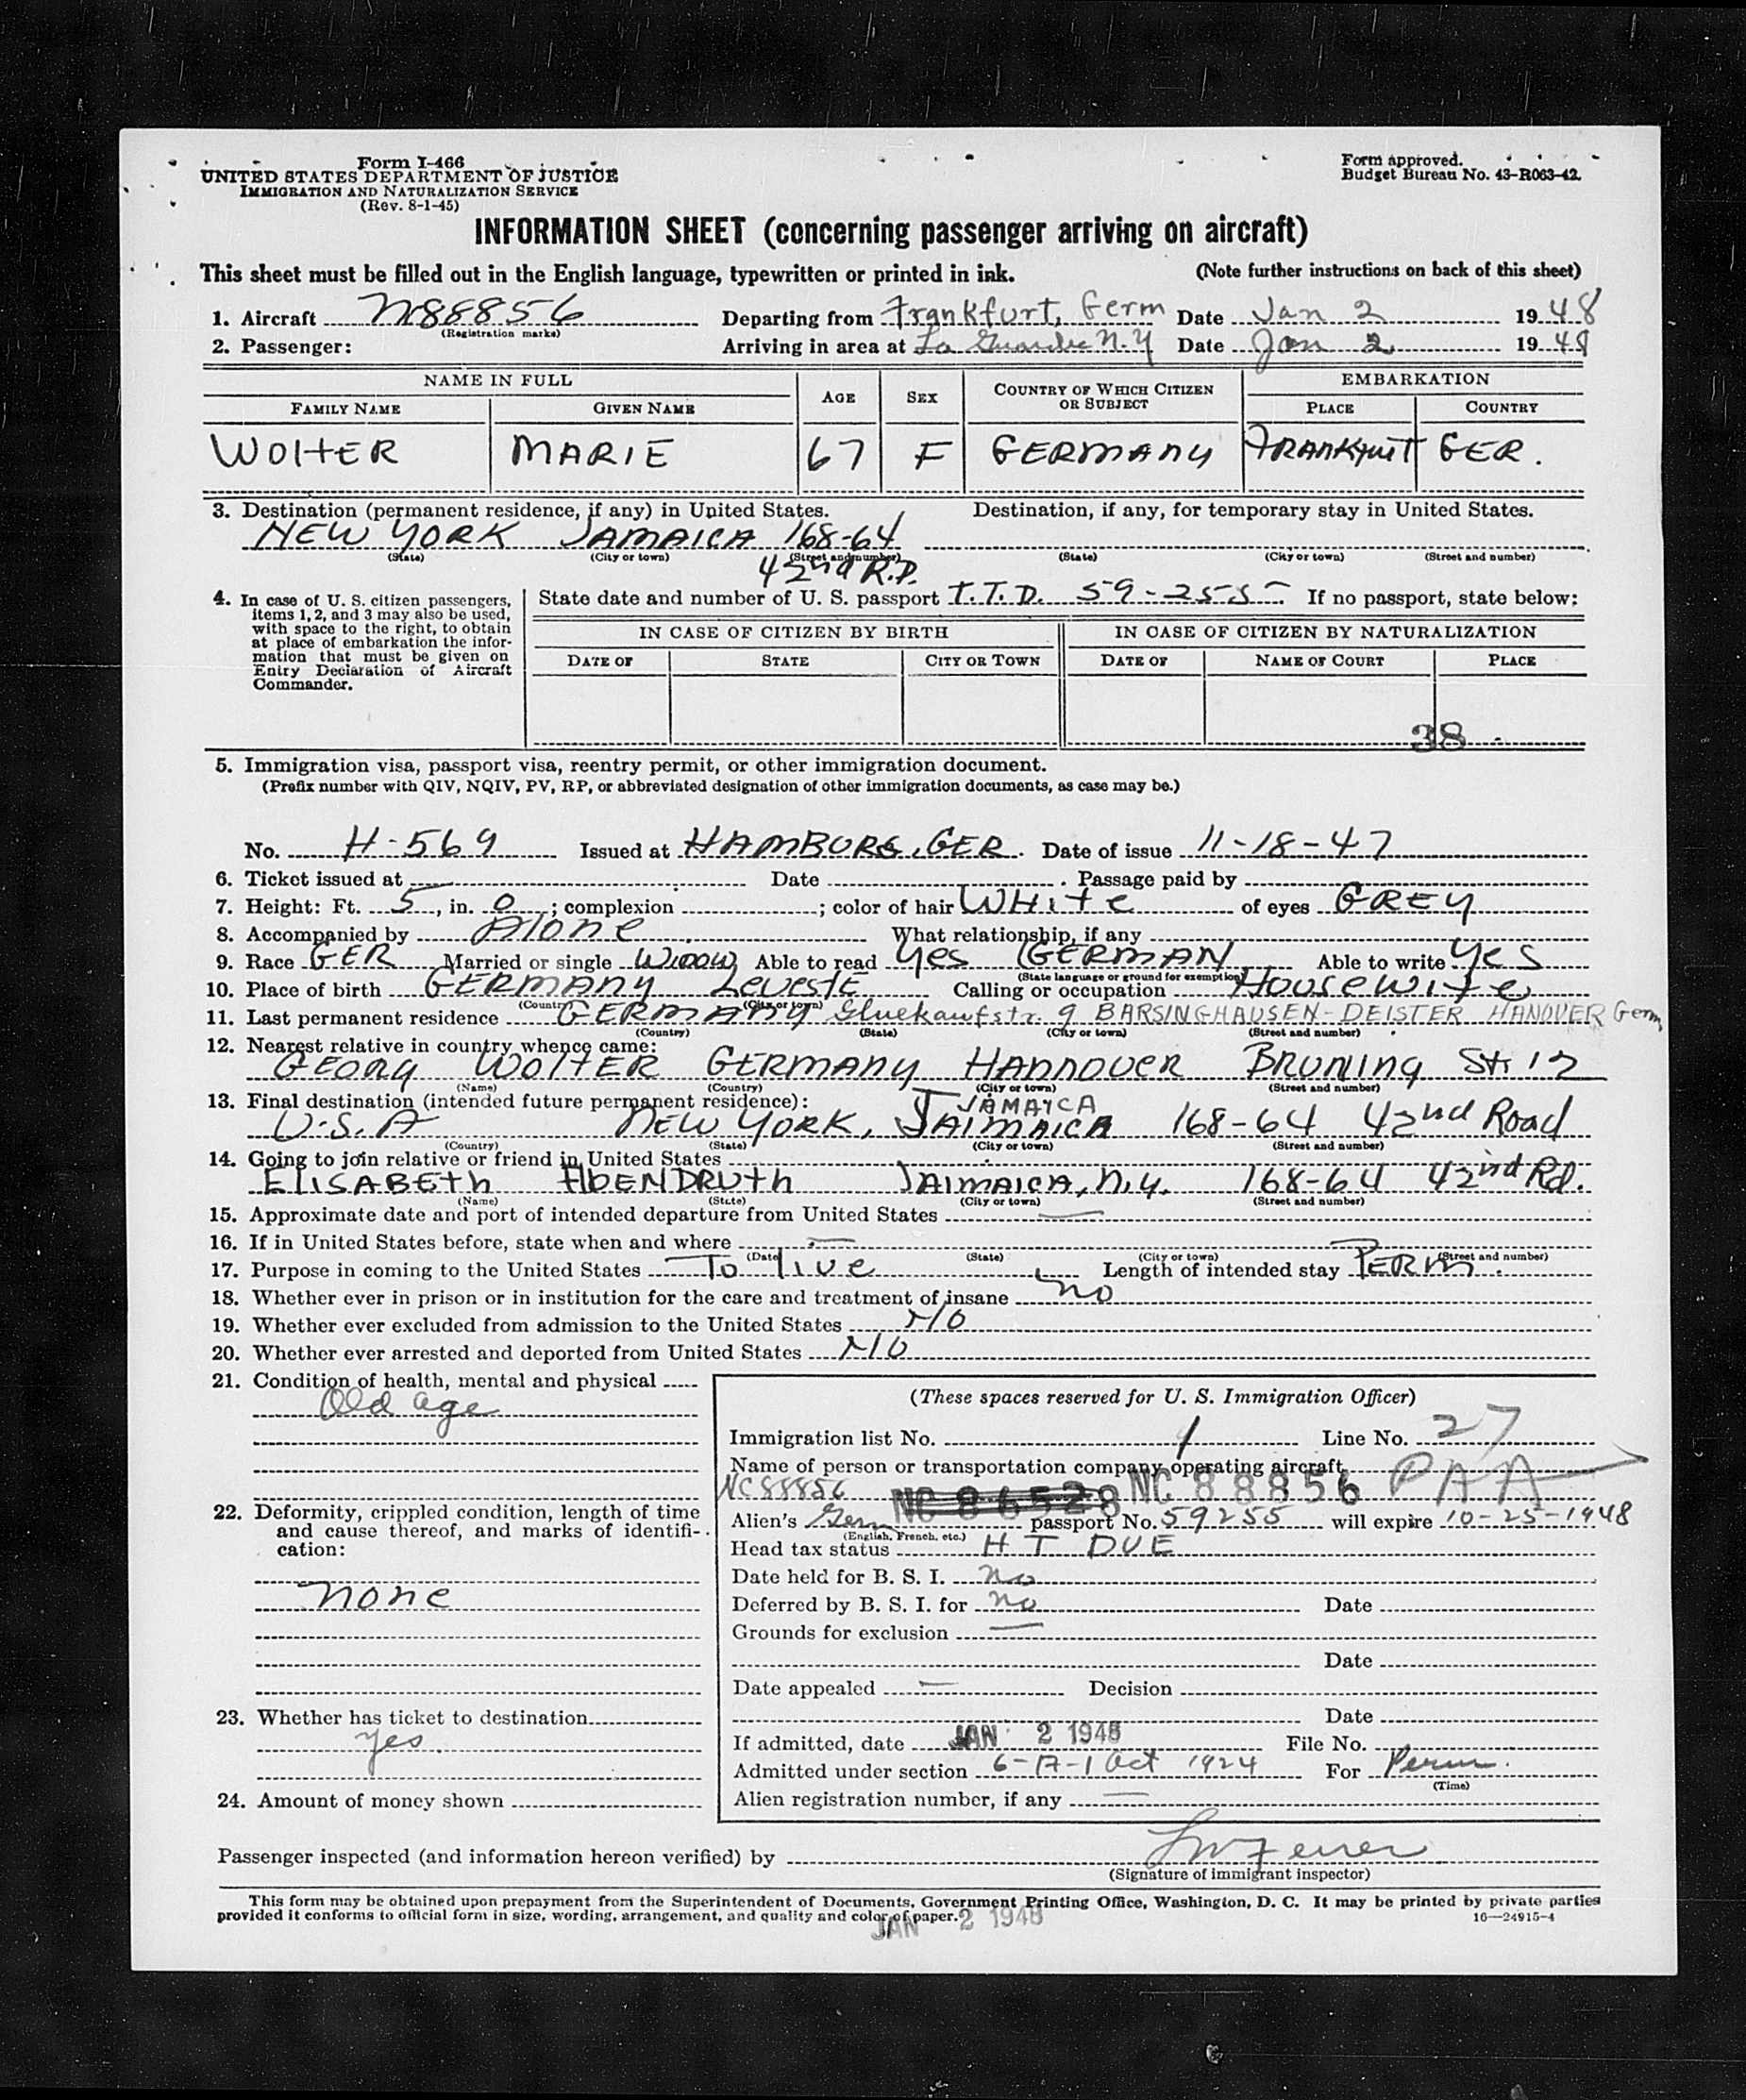 Form I-466
UNITED STATES DEPARTMENT OF JUSTICE
IMMIGRATION AND NATURALIZATION SERVICE
(Rev. 8-1-45)
Form approved.
Budget Bureau No. 43-R063-42.
INFORMATION SHEET (concerning passenger arriving on aircraft)
This sheet must be filled out in the English language, typewritten or printed in ink. (Note further instructions on back of this sheet)
1. Aircraft N88856 Departing from Frankfurt, Germ Date Jan 2 1948
(Registration marks)
2. Passenger: Arriving in area at La Guardia N.Y Date Jan 2 1948
NAME IN FULL AGE SEX COUNTRY OF WHICH CITIZEN OR SUBJECT EMBARKATION
FAMILY NAME GIVEN NAME PLACE COUNTRY
WOltER MARIE 67 F GERMANY FRANKfuRT GER.
3. Destination (permanent residence, if any) in United States. Destination, if any, for temporary stay in United States.
NEW YORK JAMAICA 168-64
(State) (City or town) (Street and number) (State) (City or town) (Street and number)
42nd RD.
4. In case of U. S. citizen passengers, items 1, 2, and 3 may also be used, with space to the right, to obtain at place of embarkation the information that must be given on Entry Declaration of Aircraft Commander.
State date and number of U. S. passport T.T.D. 59-255 If no passport, state below:
IN CASE OF CITIZEN BY BIRTH IN CASE OF CITIZEN BY NATURALIZATION
DATE OF STATE CITY OR TOWN DATE OF NAME OF COURT PLACE
38
5. Immigration visa, passport visa, reentry permit, or other immigration document.
(Prefix number with QIV, NQIV, PV, RP, or abbreviated designation of other immigration documents, as case may be.)
No. H-569 Issued at HAMBURG, GER. Date of issue 11-18-47
6. Ticket issued at Date . Passage paid by
7. Height: Ft. 5, in. 0; complexion ; color of hair WHite of eyes GREY
8. Accompanied by Alone What relationship, if any
9. Race GER Married or single WIDOW Able to read Yes GERMAN Able to write Yes
(State language or ground for exemption)
10. Place of birth GERMANY LevestE Calling or occupation Housewife
(Country) (City or town)
11. Last permanent residence GERMANY Gluekaufstr. 9 BARSINGHAUSEN-DEISTER HANOVER Germ
(Country) (State) (City or town) (Street and number)
12. Nearest relative in country whence came:
GEORG WOltER GERMANY HANNOVER BRUNING Str 12
(Name) (Country) (City or town) (Street and number)
13. Final destination (intended future permanent residence): JAMAICA
U.S.A NEW YORK, JAIMAICA 168-64 42nd Road
(Country) (State) (City or town) (Street and number)
14. Going to join relative or friend in United States
ElISABEth AbENDRUth JAIMAICA, N.Y. 168-64 42nd Rd.
(Name) (State) (City or town) (Street and number)
15. Approximate date and port of intended departure from United States —
16. If in United States before, state when and where —
(Date) (State) (City or town) (Street and number)
17. Purpose in coming to the United States To live Length of intended stay PERM.
18. Whether ever in prison or in institution for the care and treatment of insane no
19. Whether ever excluded from admission to the United States NO
20. Whether ever arrested and deported from United States NO
21. Condition of health, mental and physical
Old age
22. Deformity, crippled condition, length of time and cause thereof, and marks of identification:
none
23. Whether has ticket to destination
yes
24. Amount of money shown
(These spaces reserved for U. S. Immigration Officer)
Immigration list No. 1 Line No. 27
Name of person or transportation company operating aircraft PAA
NC88856 NC 86528 NC 88856
Alien's Germ passport No. 59255 will expire 10-25-1948
(English, French, etc.)
Head tax status H T DUE
Date held for B. S. I. no
Deferred by B. S. I. for no Date
Grounds for exclusion —
Date
Date appealed — Decision
Date
If admitted, date JAN 2 1948 File No.
Admitted under section 6-A-1 Act 1924 For Perm.
(Time)
Alien registration number, if any —
Passenger inspected (and information hereon verified) by
(Signature of immigrant inspector)
This form may be obtained upon prepayment from the Superintendent of Documents, Government Printing Office, Washington, D. C. It may be printed by private parties
provided it conforms to official form in size, wording, arrangement, and quality and color of paper. 16—24915-4
JAN 2 1948